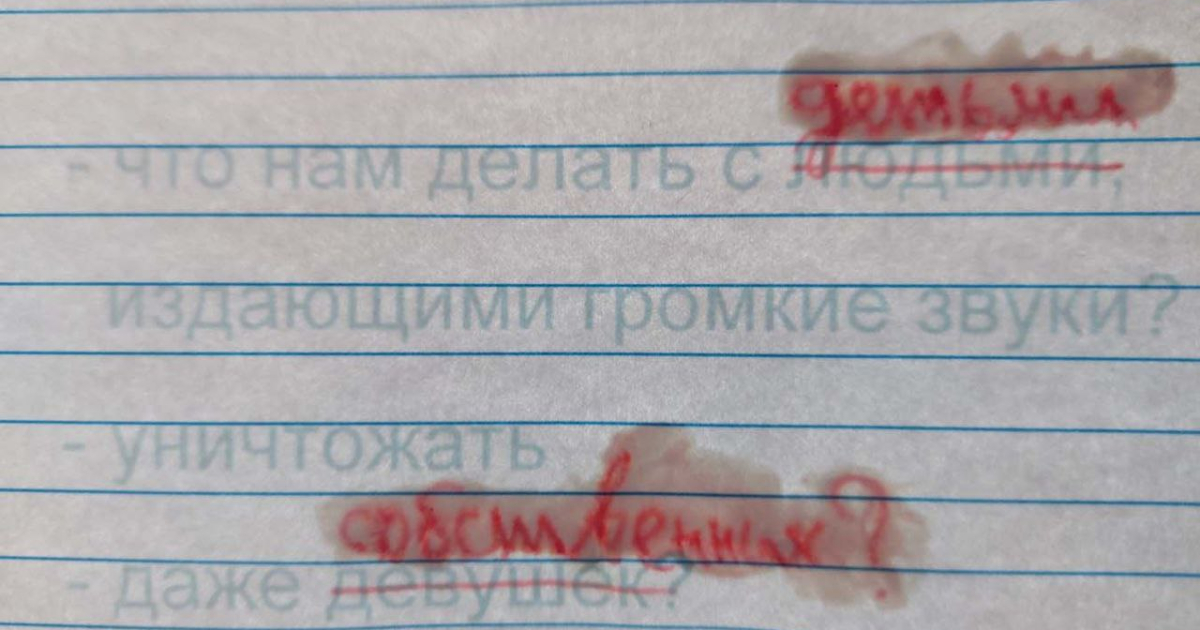 детьми
- что нам делать с людьми,
издающими громкие звуки?
- уничтожать
собственных?
- даже девушек?